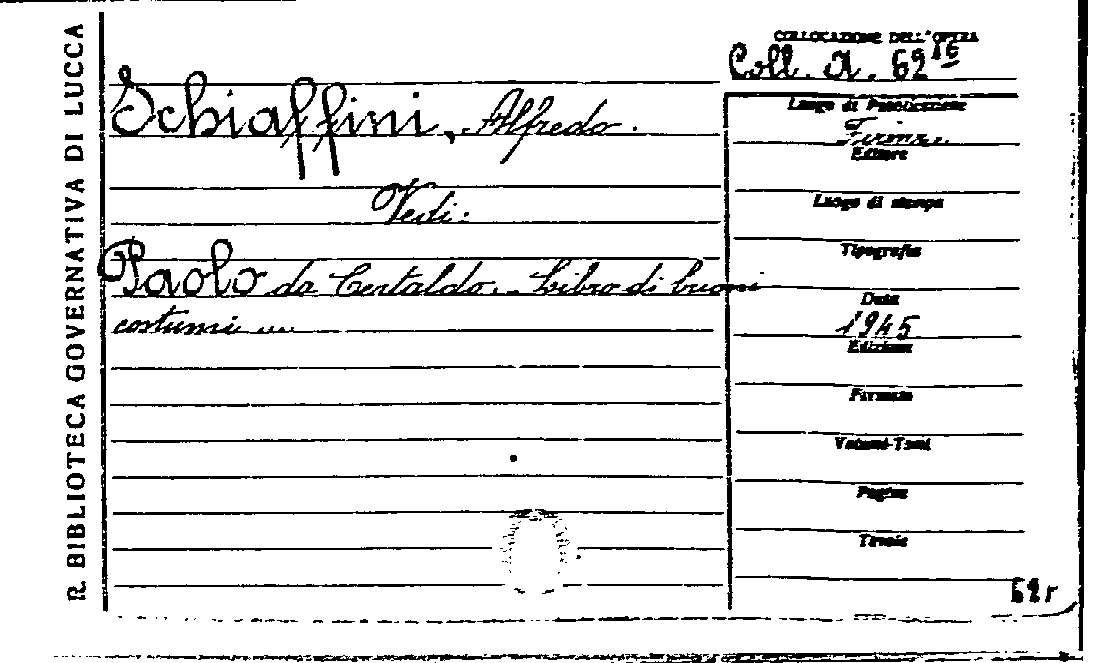 R. BIBLIOTECA GOVERNATIVA DI LUCCA
COLLOCAZIONE DELL'OPERA
Coll. A. 62 16
Schiaffini, Alfredo.
Vedi:
Paolo da Certaldo. - Libro di buoni
costumi ...
Luogo di Pubblicazione
Firenze
Editore
Luogo di stampa
Tipografia
Data
1945
Edizione
Formato
Volumi-Tomi
Pagine
Tavole
62r